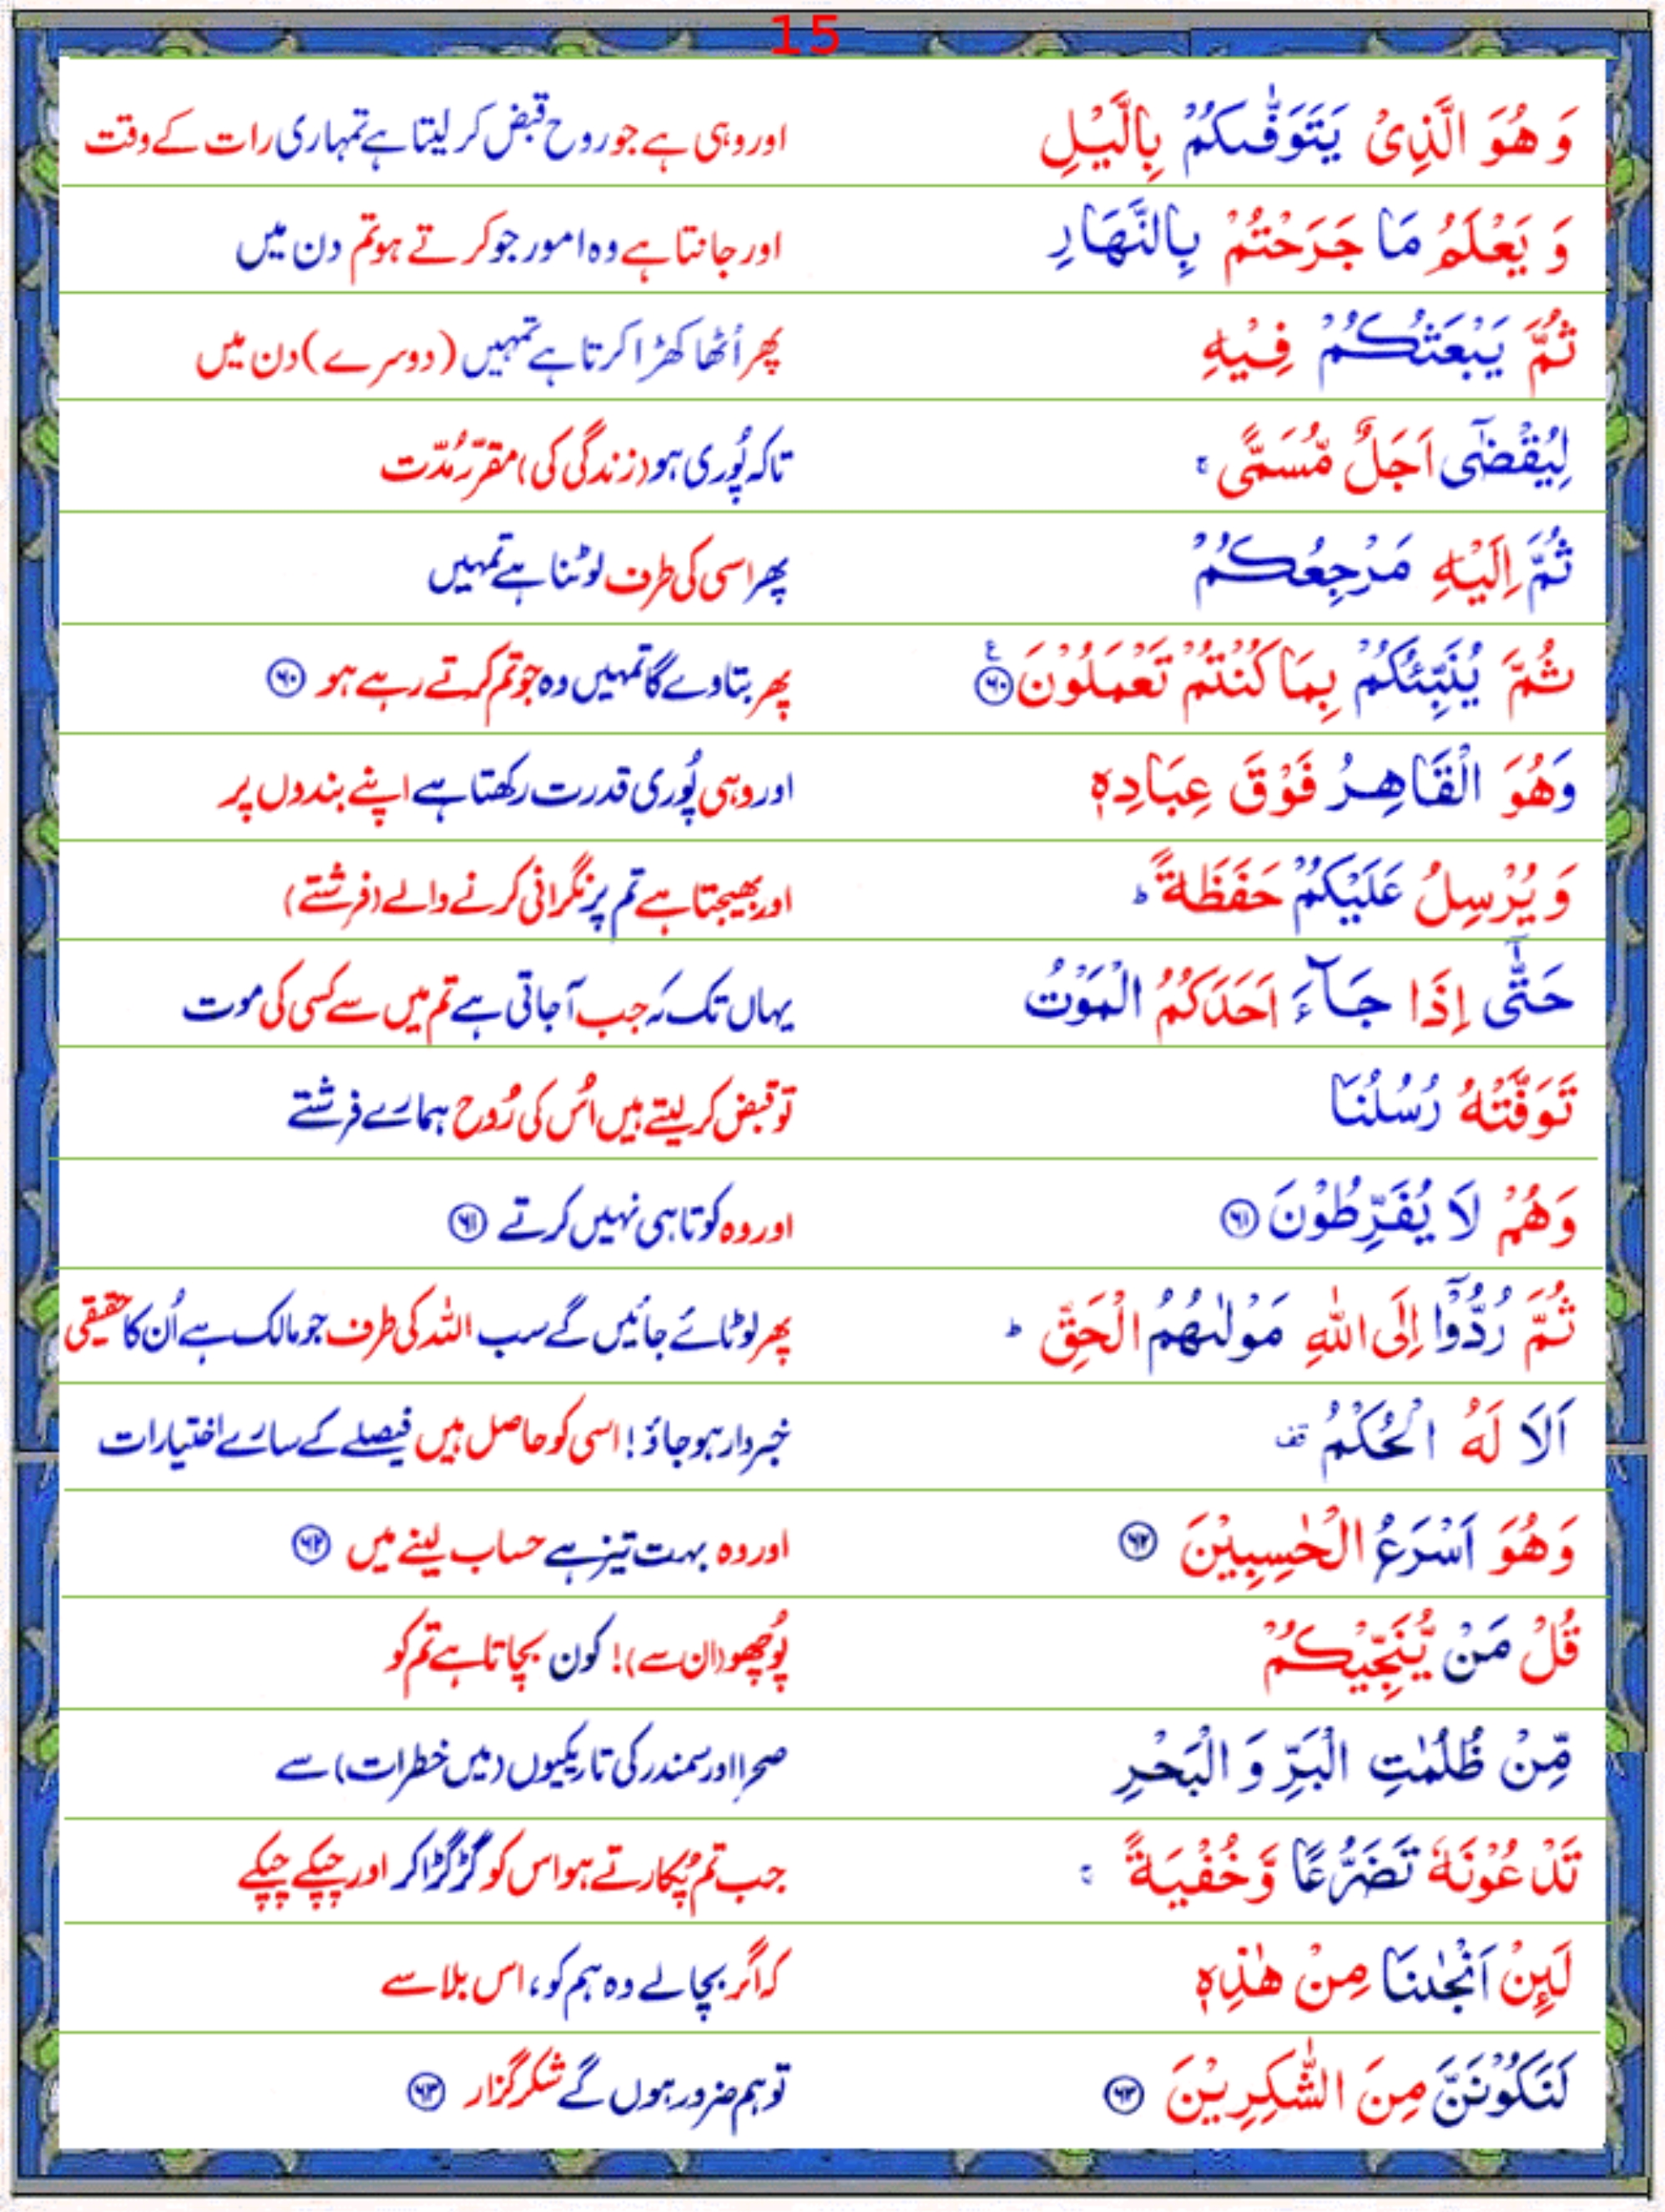 15
وَ هُوَ الَّذِیْ یَتَوَفّٰىکُمْ بِالَّیْلِ اور وہی ہے جو روح قبض کر لیتا ہے تمہاری رات کے وقت
وَ یَعْلَمُ مَا جَرَحْتُمْ بِالنَّهَارِ اور جانتا ہے وہ امور جو کرتے ہو تم دن میں
ثُمَّ یَبْعَثُکُمْ فِیْهِ پھر اُٹھا کھڑا کرتا ہے تمہیں (دوسرے) دن میں
لِیُقْضٰۤی اَجَلٌ مُّسَمًّی ۚ تاکہ پُوری ہو (زندگی کی) مقررّہ مُدّت
ثُمَّ اِلَیْهِ مَرْجِعُکُمْ پھر اسی کی طرف لوٹنا ہے تمہیں
ثُمَّ یُنَبِّئُکُمْ بِمَا کُنْتُمْ تَعْمَلُوْنَ ﴿۶۰﴾ ع پھر بتا دے گا تمہیں وہ جو تم کرتے رہے ہو ﴿۶۰﴾
وَهُوَ الْقَاهِرُ فَوْقَ عِبَادِهٖ اور وہی پُوری قدرت رکھتا ہے اپنے بندوں پر
وَ یُرْسِلُ عَلَیْکُمْ حَفَظَةً ؕ اور بھیجتا ہے تم پر نگرانی کرنے والے (فرشتے)
حَتّٰۤی اِذَا جَآءَ اَحَدَکُمُ الْمَوْتُ یہاں تک کہ جب آ جاتی ہے تم میں سے کسی کی موت
تَوَفَّتْهُ رُسُلُنَا تو قبض کر لیتے ہیں اُس کی رُوح ہمارے فرشتے
وَهُمْ لَا یُفَرِّطُوْنَ ﴿۶۱﴾ اور وہ کوتاہی نہیں کرتے ﴿۶۱﴾
ثُمَّ رُدُّوْۤا اِلَی اللّٰهِ مَوْلٰىهُمُ الْحَقِّ ؕ پھر لوٹائے جائیں گے سب اللہ کی طرف جو مالک ہے اُن کا حقیقی
اَلَا لَهُ الْحُکْمُ قف خبردار ہو جاؤ! اسی کو حاصل ہیں فیصلے کے سارے اختیارات
وَهُوَ اَسْرَعُ الْحٰسِبِیْنَ ﴿۶۲﴾ اور وہ بہت تیز ہے حساب لینے میں ﴿۶۲﴾
قُلْ مَنْ یُّنَجِّیْکُمْ پُوچھو (ان سے)! کون بچاتا ہے تم کو
مِّنْ ظُلُمٰتِ الْبَرِّ وَ الْبَحْرِ صحرا اور سمندر کی تاریکیوں (میں خطرات) سے
تَدْعُوْنَهٗ تَضَرُّعًا وَّخُفْیَةً ۚ جب تم پُکارتے ہو اس کو گڑگڑا کر اور چپکے چپکے
لَئِنْ اَنْجٰىنَا مِنْ هٰذِهٖ کہ اگر بچا لے وہ ہم کو، اس بلا سے
لَنَکُوْنَنَّ مِنَ الشّٰکِرِیْنَ ﴿۶۳﴾ تو ہم ضرور ہوں گے شکر گزار ﴿۶۳﴾